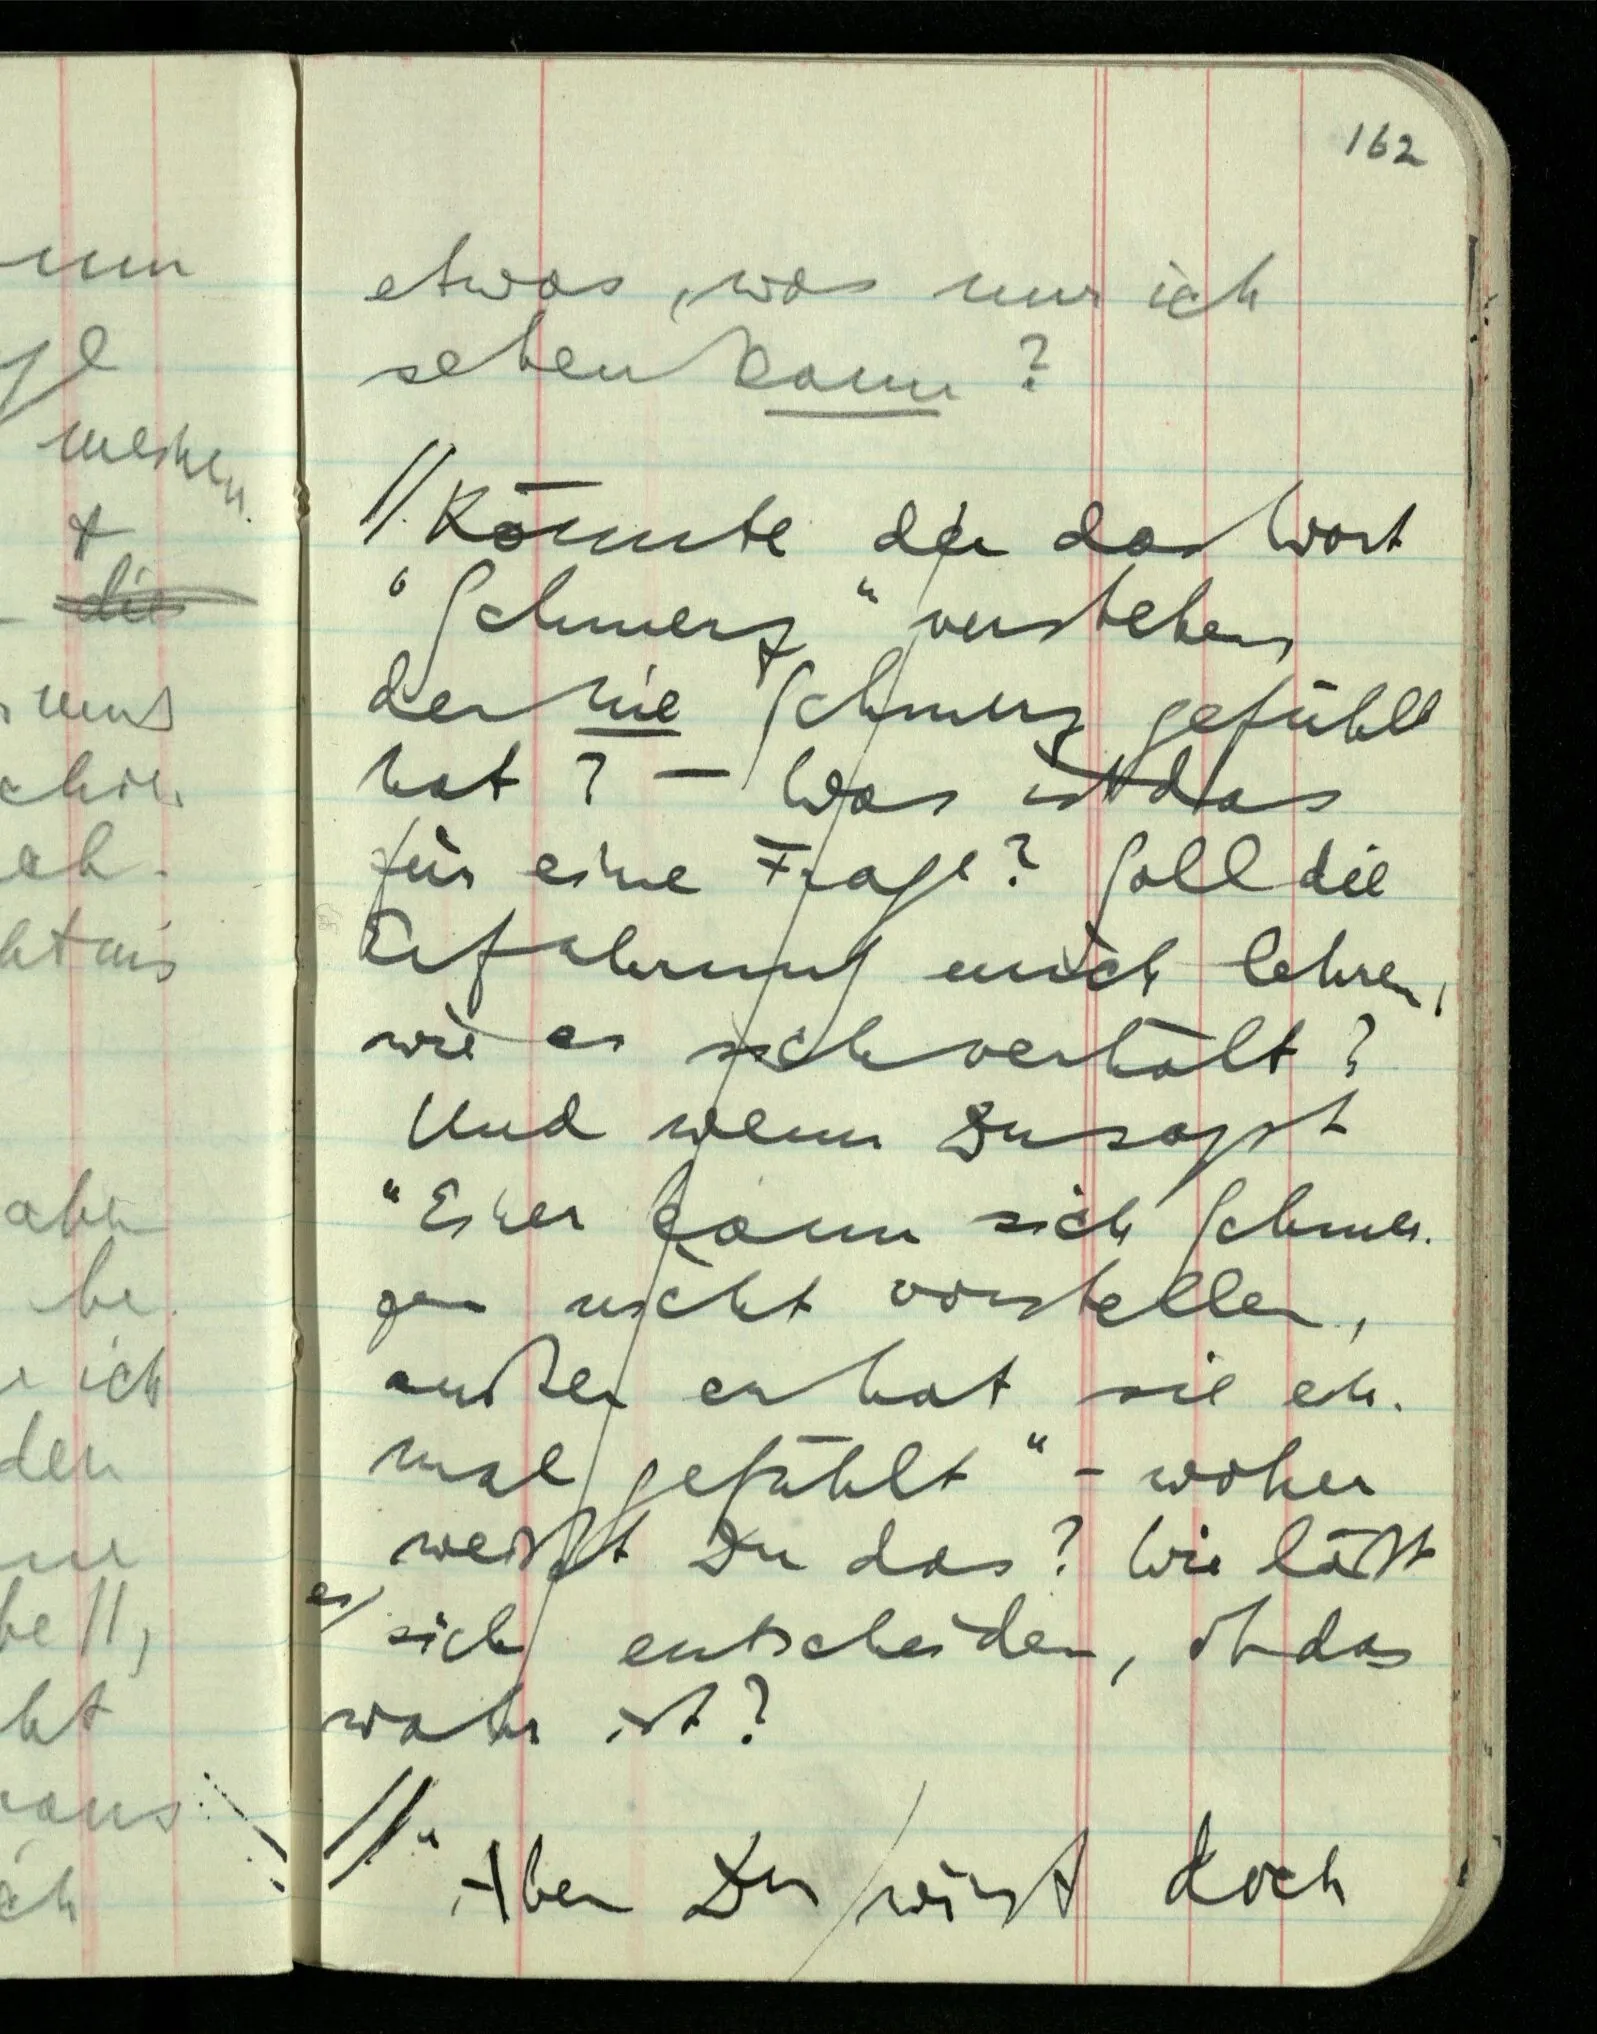 162
etwas, was nur ich
sehen kann?
// Könnte der das Wort
"Schmerz" verstehen
der nie Schmerz gefühlt
hat? – Was ist das
für eine Frage? Soll die
Erfahrung mich lehren,
wie es sich verhält?
Und wenn Du sagst
"Einer kann sich Schmer-
zen nicht vorstellen,
außer er hat sie ein-
mal gefühlt" – woher
weißt Du das? Wie läßt
es
sich entscheiden, ob das
wahr ist?
// "Aber Du wirst doch
die
ich
den